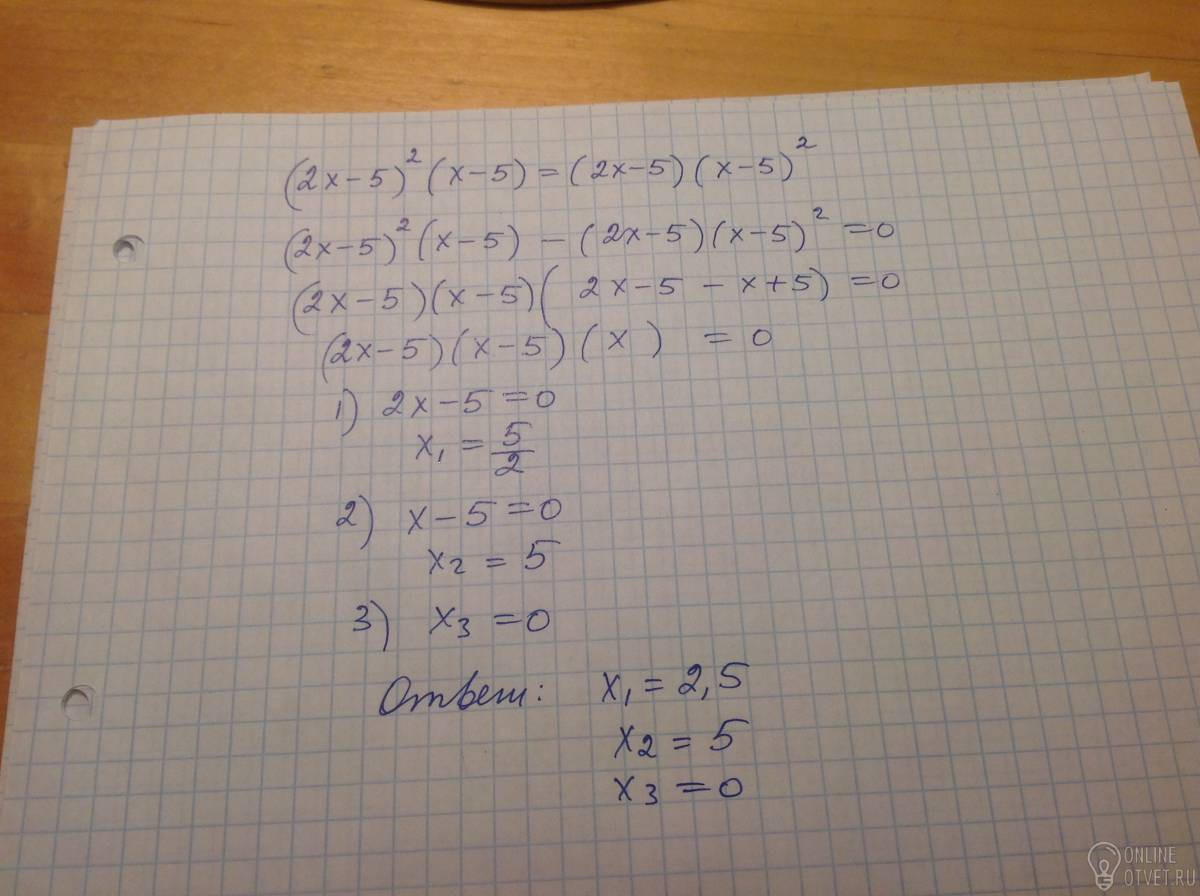 (2x-5)²(x-5)=(2x-5)(x-5)²
(2x-5)²(x-5) - (2x-5)(x-5)² =0
(2x-5)(x-5)(2x-5 - x+5) =0
(2x-5)(x-5)(x) = 0
1) 2x-5=0
x₁ = 5/2
2) x-5=0
x₂ = 5
3) x₃ =0
Ответ: x₁ = 2,5
x₂ = 5
x₃ =0
ONLINE
OTVET.RU